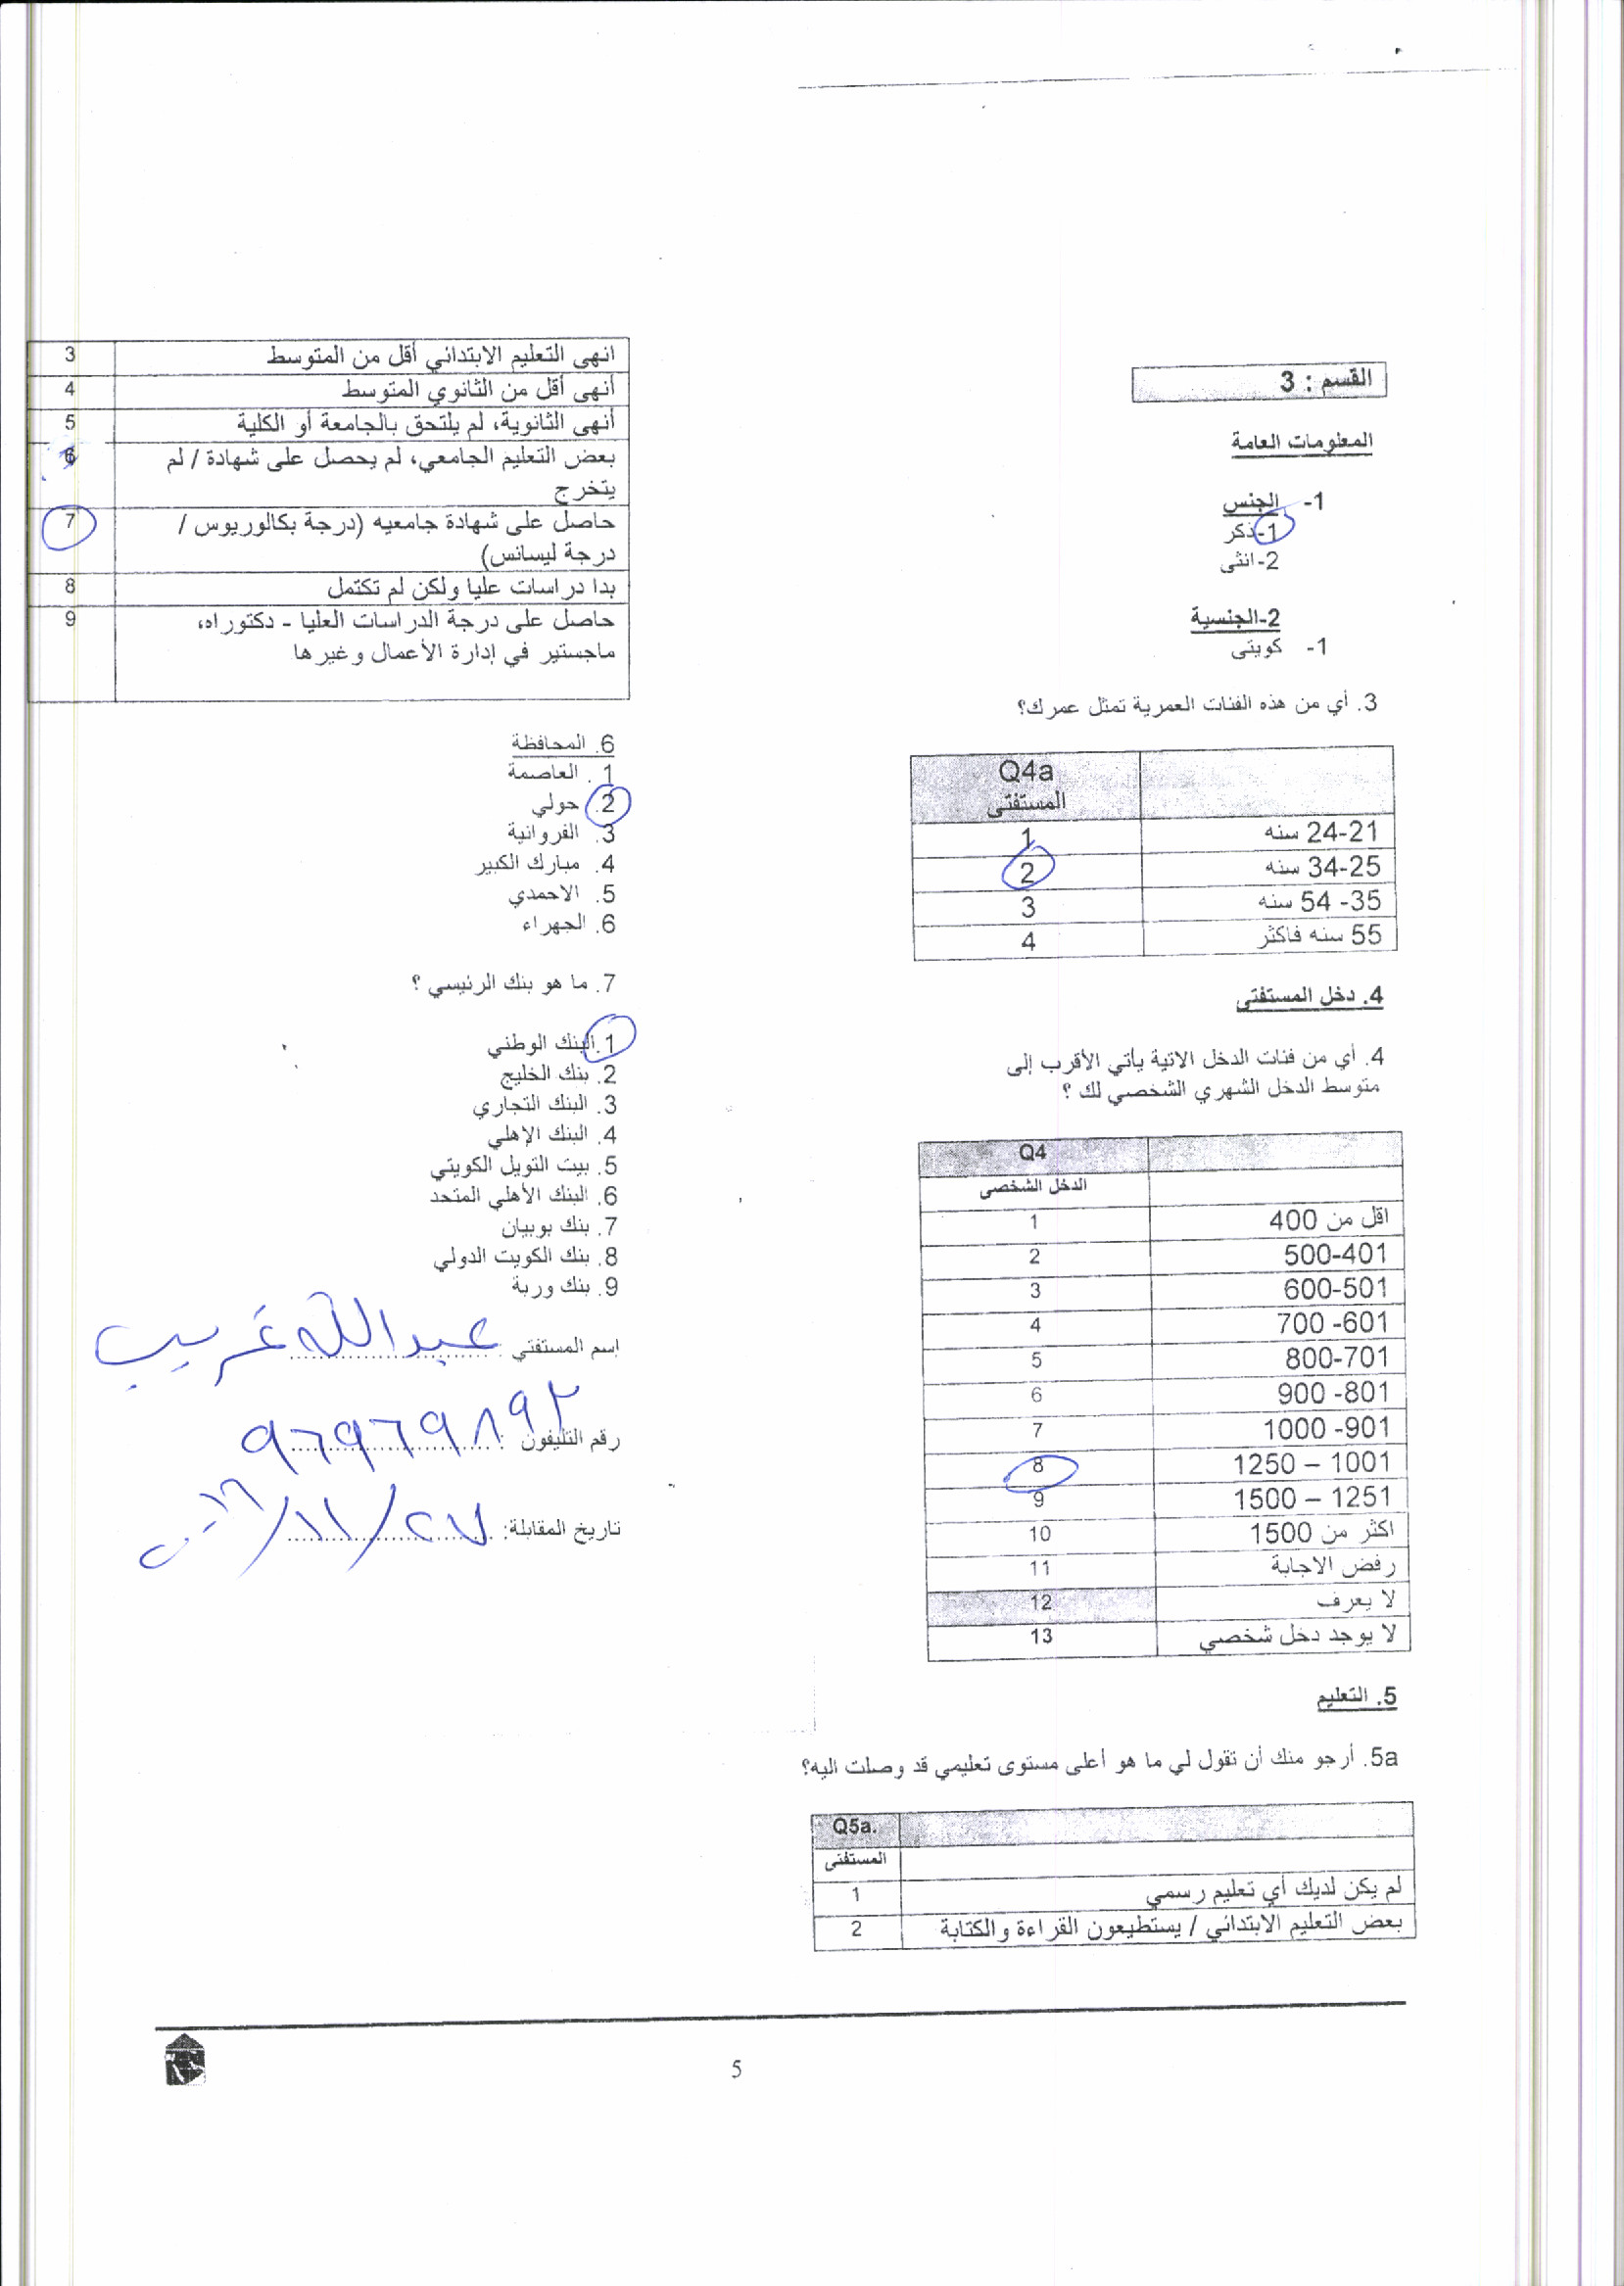 القسم : 3
المعلومات العامة
1- الجنس
1-ذكر
2-انثى
2-الجنسية
1- كويتى
3. أي من هذه الفئات العمرية تمثل عمرك؟
Q4a
المستفتى
24-21 سنه 1
34-25 سنه 2
35- 54 سنه 3
55 سنه فاكثر 4
4. دخل المستفتى
4. أي من فئات الدخل الاتية يأتي الأقرب إلى
متوسط الدخل الشهري الشخصي لك ؟
Q4
الدخل الشخصى
اقل من 400 1
500-401 2
600-501 3
700 -601 4
800-701 5
900 -801 6
1000 -901 7
1250 – 1001 8
1500 – 1251 9
اكثر من 1500 10
رفض الاجابة 11
لا يعرف 12
لا يوجد دخل شخصي 13
5. التعليم
5a. أرجو منك أن تقول لي ما هو أعلى مستوى تعليمي قد وصلت اليه؟
Q5a.
المستفتى
لم يكن لديك أي تعليم رسمي 1
بعض التعليم الابتدائي / يستطيعون القراءة والكتابة 2
انهى التعليم الابتدائي أقل من المتوسط 3
أنهى أقل من الثانوي المتوسط 4
أنهى الثانوية، لم يلتحق بالجامعة أو الكلية 5
بعض التعليم الجامعي، لم يحصل على شهادة / لم 6
يتخرج
حاصل على شهادة جامعيه (درجة بكالوريوس / 7
درجة ليسانس)
بدا دراسات عليا ولكن لم تكتمل 8
حاصل على درجة الدراسات العليا - دكتوراه، 9
ماجستير في إدارة الأعمال وغيرها
6. المحافظة
1. العاصمة
2. حولي
3. الفروانية
4. مبارك الكبير
5. الاحمدي
6. الجهراء
7. ما هو بنك الرئيسي ؟
1. البنك الوطني
2. بنك الخليج
3. البنك التجاري
4. البنك الإهلي
5. بيت التويل الكويتي
6. البنك الأهلي المتحد
7. بنك بوبيان
8. بنك الكويت الدولي
9. بنك وربة
اسم المستفتي : عبدالله غريب
رقم التليفون : ٩٦٩٦٩٨٩٢
تاريخ المقابلة: ٢٧/١١/٢٠١٦
5